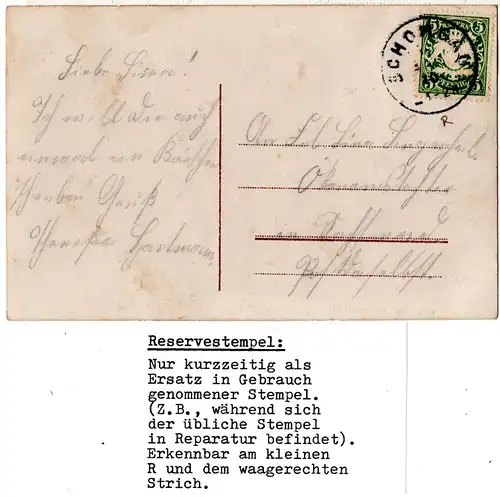 SCHONGAU
5 PFENNIG 5
R
Liebe Lina!
Ich will dir auch
einmal ein Kärtchen
schreiben Gruß
Theresa Hartmann,
An Frl Lina
in
Post daselbst.
Reservestempel:
Nur kurzzeitig als
Ersatz in Gebrauch
genommener Stempel.
(Z.B., während sich
der übliche Stempel
in Reparatur befindet).
Erkennbar am kleinen
R und dem waagerechten
Strich.